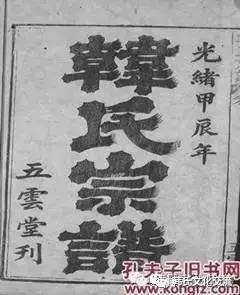 光緒甲辰年
韓氏宗譜
五雲堂刊
韩氏文化交流
孔夫子旧书网
www.kongfz.com